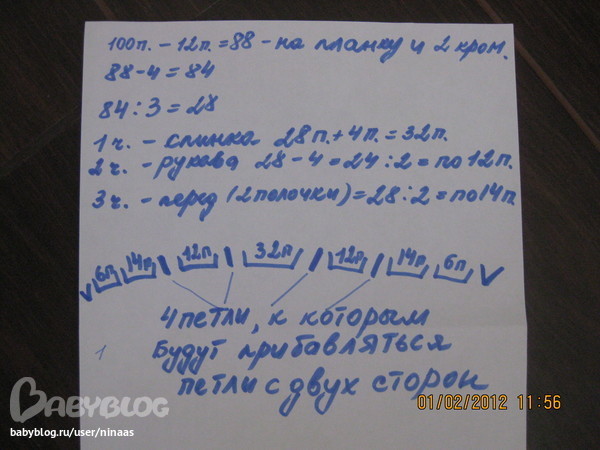 100п. - 12п. = 88 - на планку и 2 кром.
88-4 = 84
84 : 3 = 28
1 ч. - спинка 28п. + 4п. = 32п.
2 ч. - рукава 28 - 4 = 24 : 2 = по 12п.
3 ч. - перед (2 полочки) = 28 : 2 = по 14п.
V 6п 14п | 12п | 32п | 12п | 14п 6п V
4 петли, к которым
1 будут прибавляться
петли с двух сторон
BABYBLOG
01/02/2012 11:56
babyblog.ru/user/ninaas